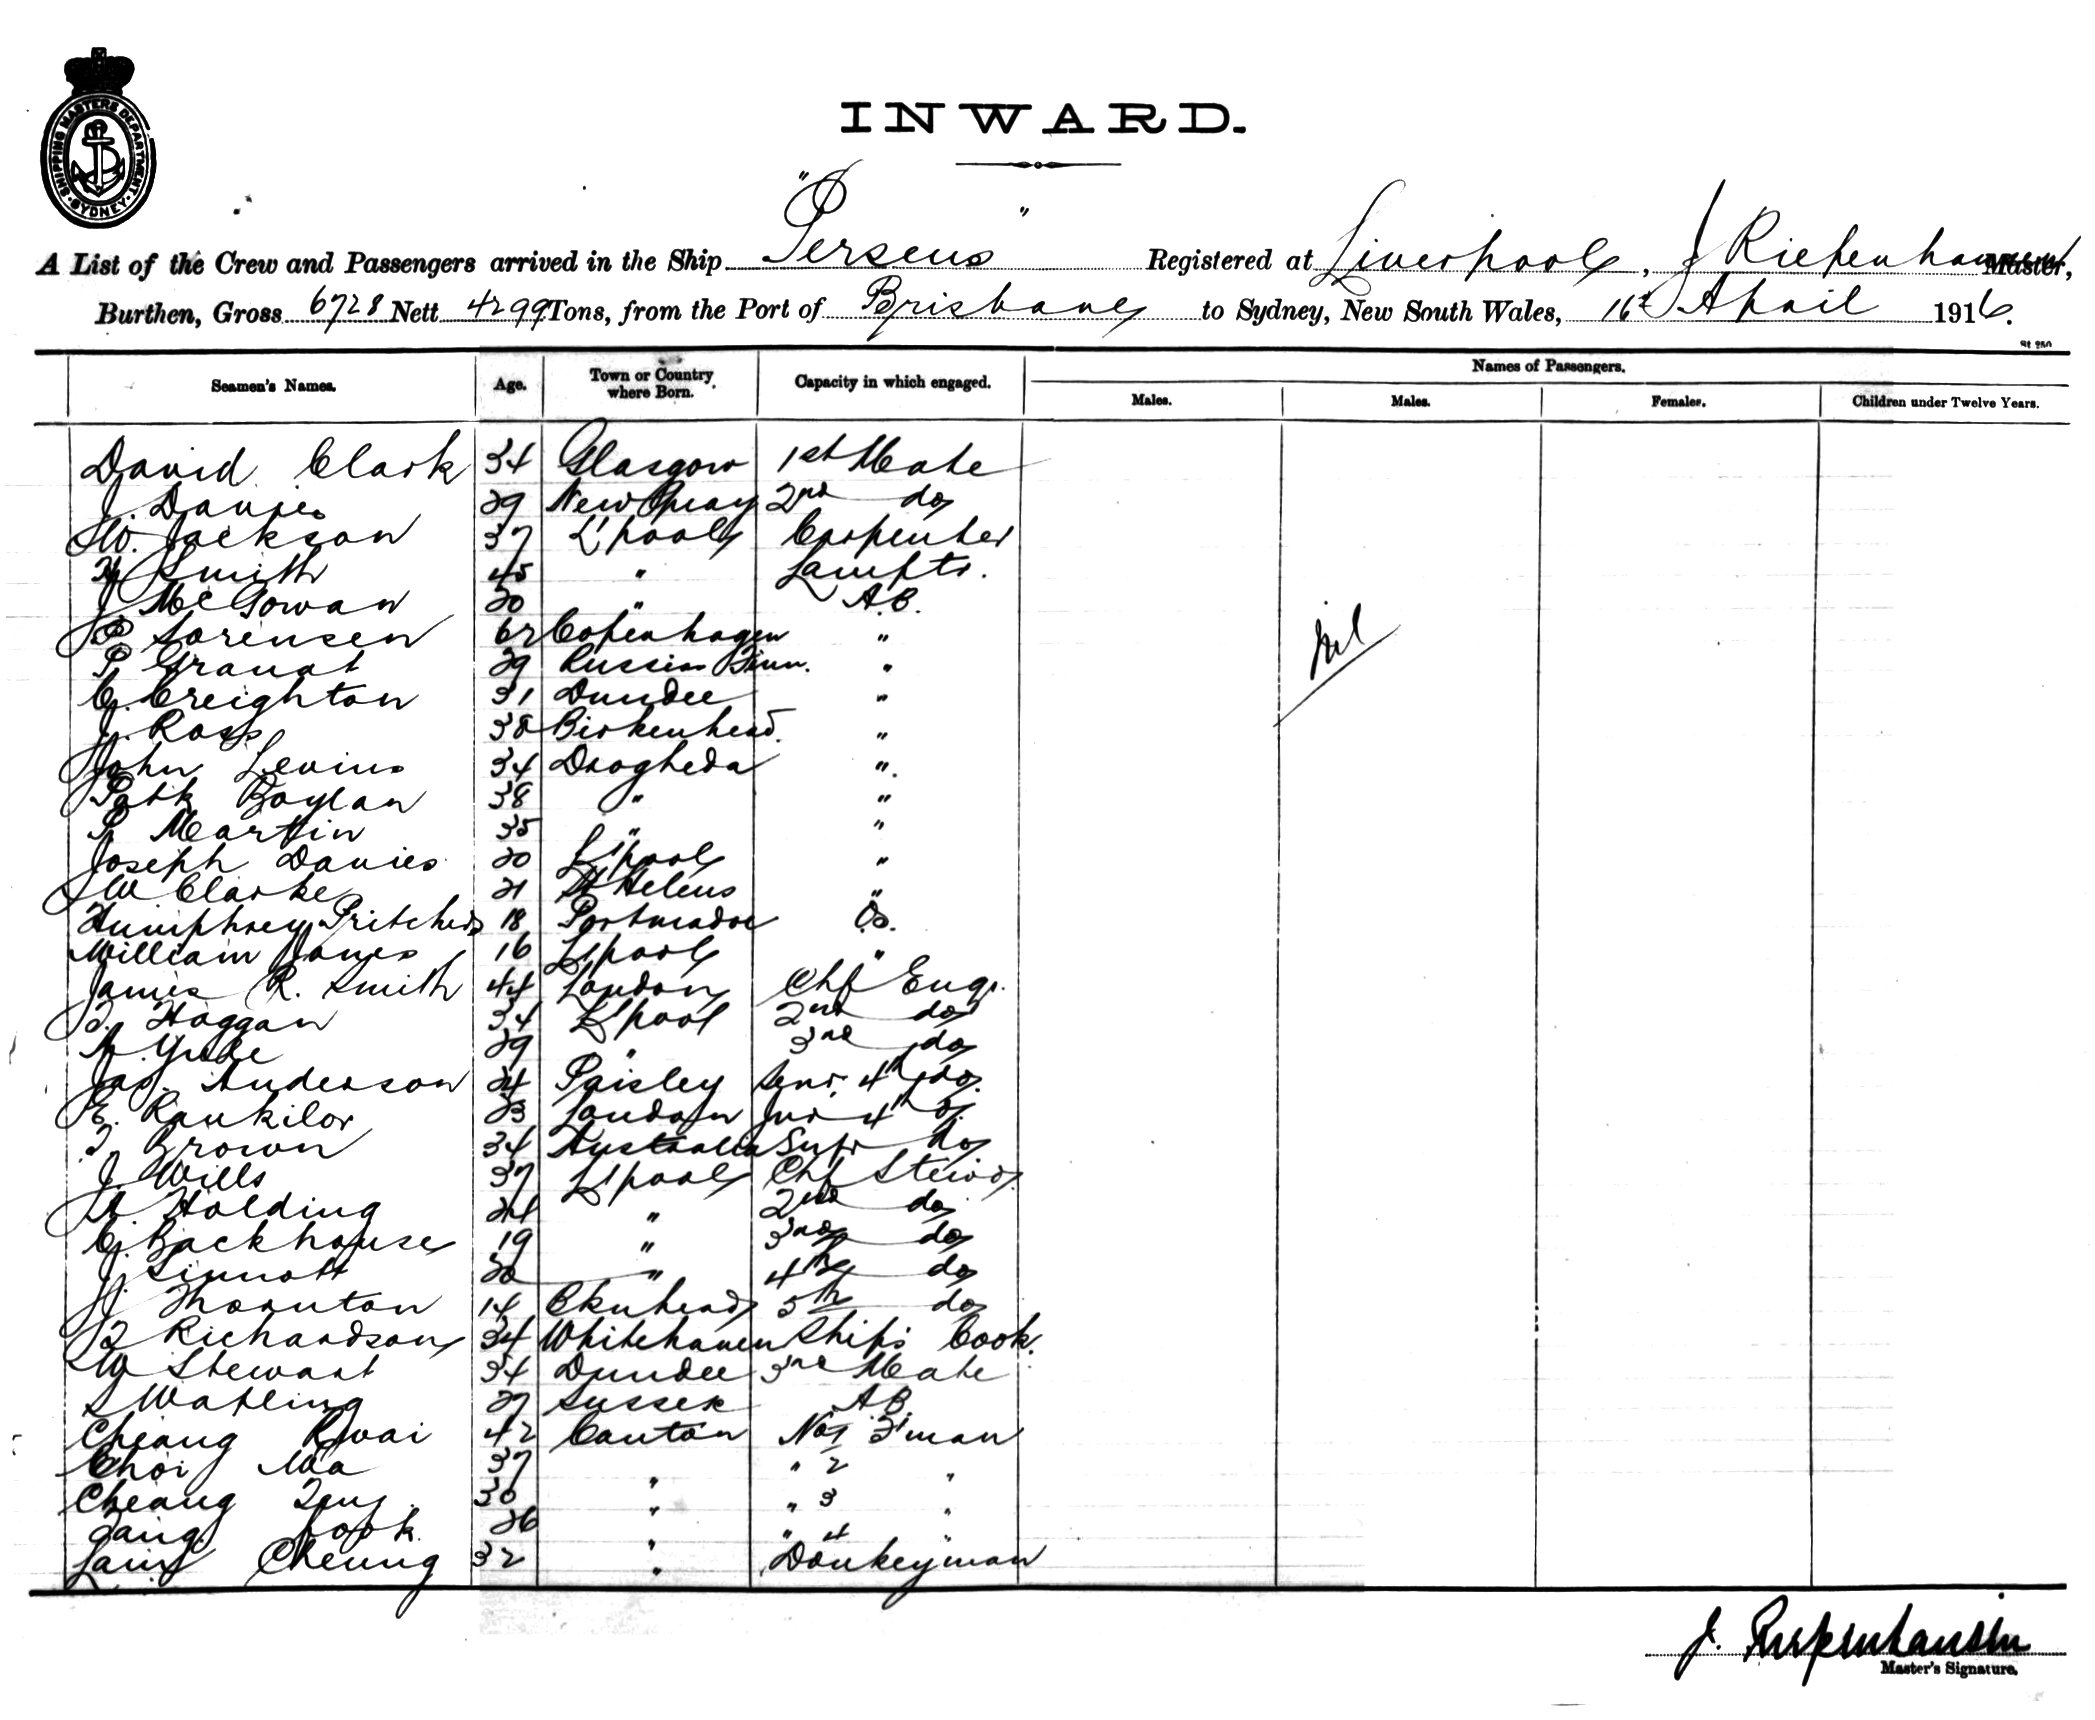 SHIPPING MASTERS DEPARTMENT SYDNEY
INWARD.
A List of the Crew and Passengers arrived in the Ship "Perseus" Registered at Liverpool, J Riepenhausen Master,
Burthen, Gross 6728 Nett 4299 Tons, from the Port of Brisbane to Sydney, New South Wales, 16th April 1916.
St 250
Seamen's Names. Age. Town or Country where Born. Capacity in which engaged. Names of Passengers.
Males. Males. Females. Children under Twelve Years.
David Clark 34 Glasgow 1st Mate
J. Davies 29 New Quay 2nd do
W. Jackson 37 L'pool Carpenter
H Smith 45 " Lamptr.
J McGowan 20 " A.B.
P Sorensen 62 Copenhagen "
P. Granat 29 Russian Finn. "
C. Creighton 31 Dundee "
J. Ross 38 Birkenhead. "
John Levins 34 Drogheda ".
Patk Boylan 38 " "
P. Martin 35 " "
Joseph Davies 20 L'pool "
W Clarke 21 St Helens "
Humphrey Pritchard 18 Portmadoc O.S.
William Jones 16 L'pool "
James R. Smith 44 London Chf Engr.
T. Haggan 34 L'pool 2nd do
A. Yule 29 " 3rd do
Jas. Anderson 24 Paisley Senr. 4th do.
E. Rankilor 23 London Jnr 4th do.
T. Brown 34 Australia Supr do
J. Wills 37 L'pool Chf Steward
A. Holding 24 " 2nd do
C. Backhouse 19 " 3rd do
J. Sinnott 20 " 4th do
J. Thornton 14 B'kenhead 5th do
T Richardson 34 Whitehaven Ship's Cook.
W Stewart 34 Dundee 3rd Mate
S Watling 27 Sussex A.B.
Cheang Kwai 42 Canton No 1 F'man
Choi Wa 37 " " 2 "
Cheang 30 " " 3 "
26 " " 4 "
Lam Cheung 32 " Donkeyman
Nil
J. Riepenhausen
Master's Signature.